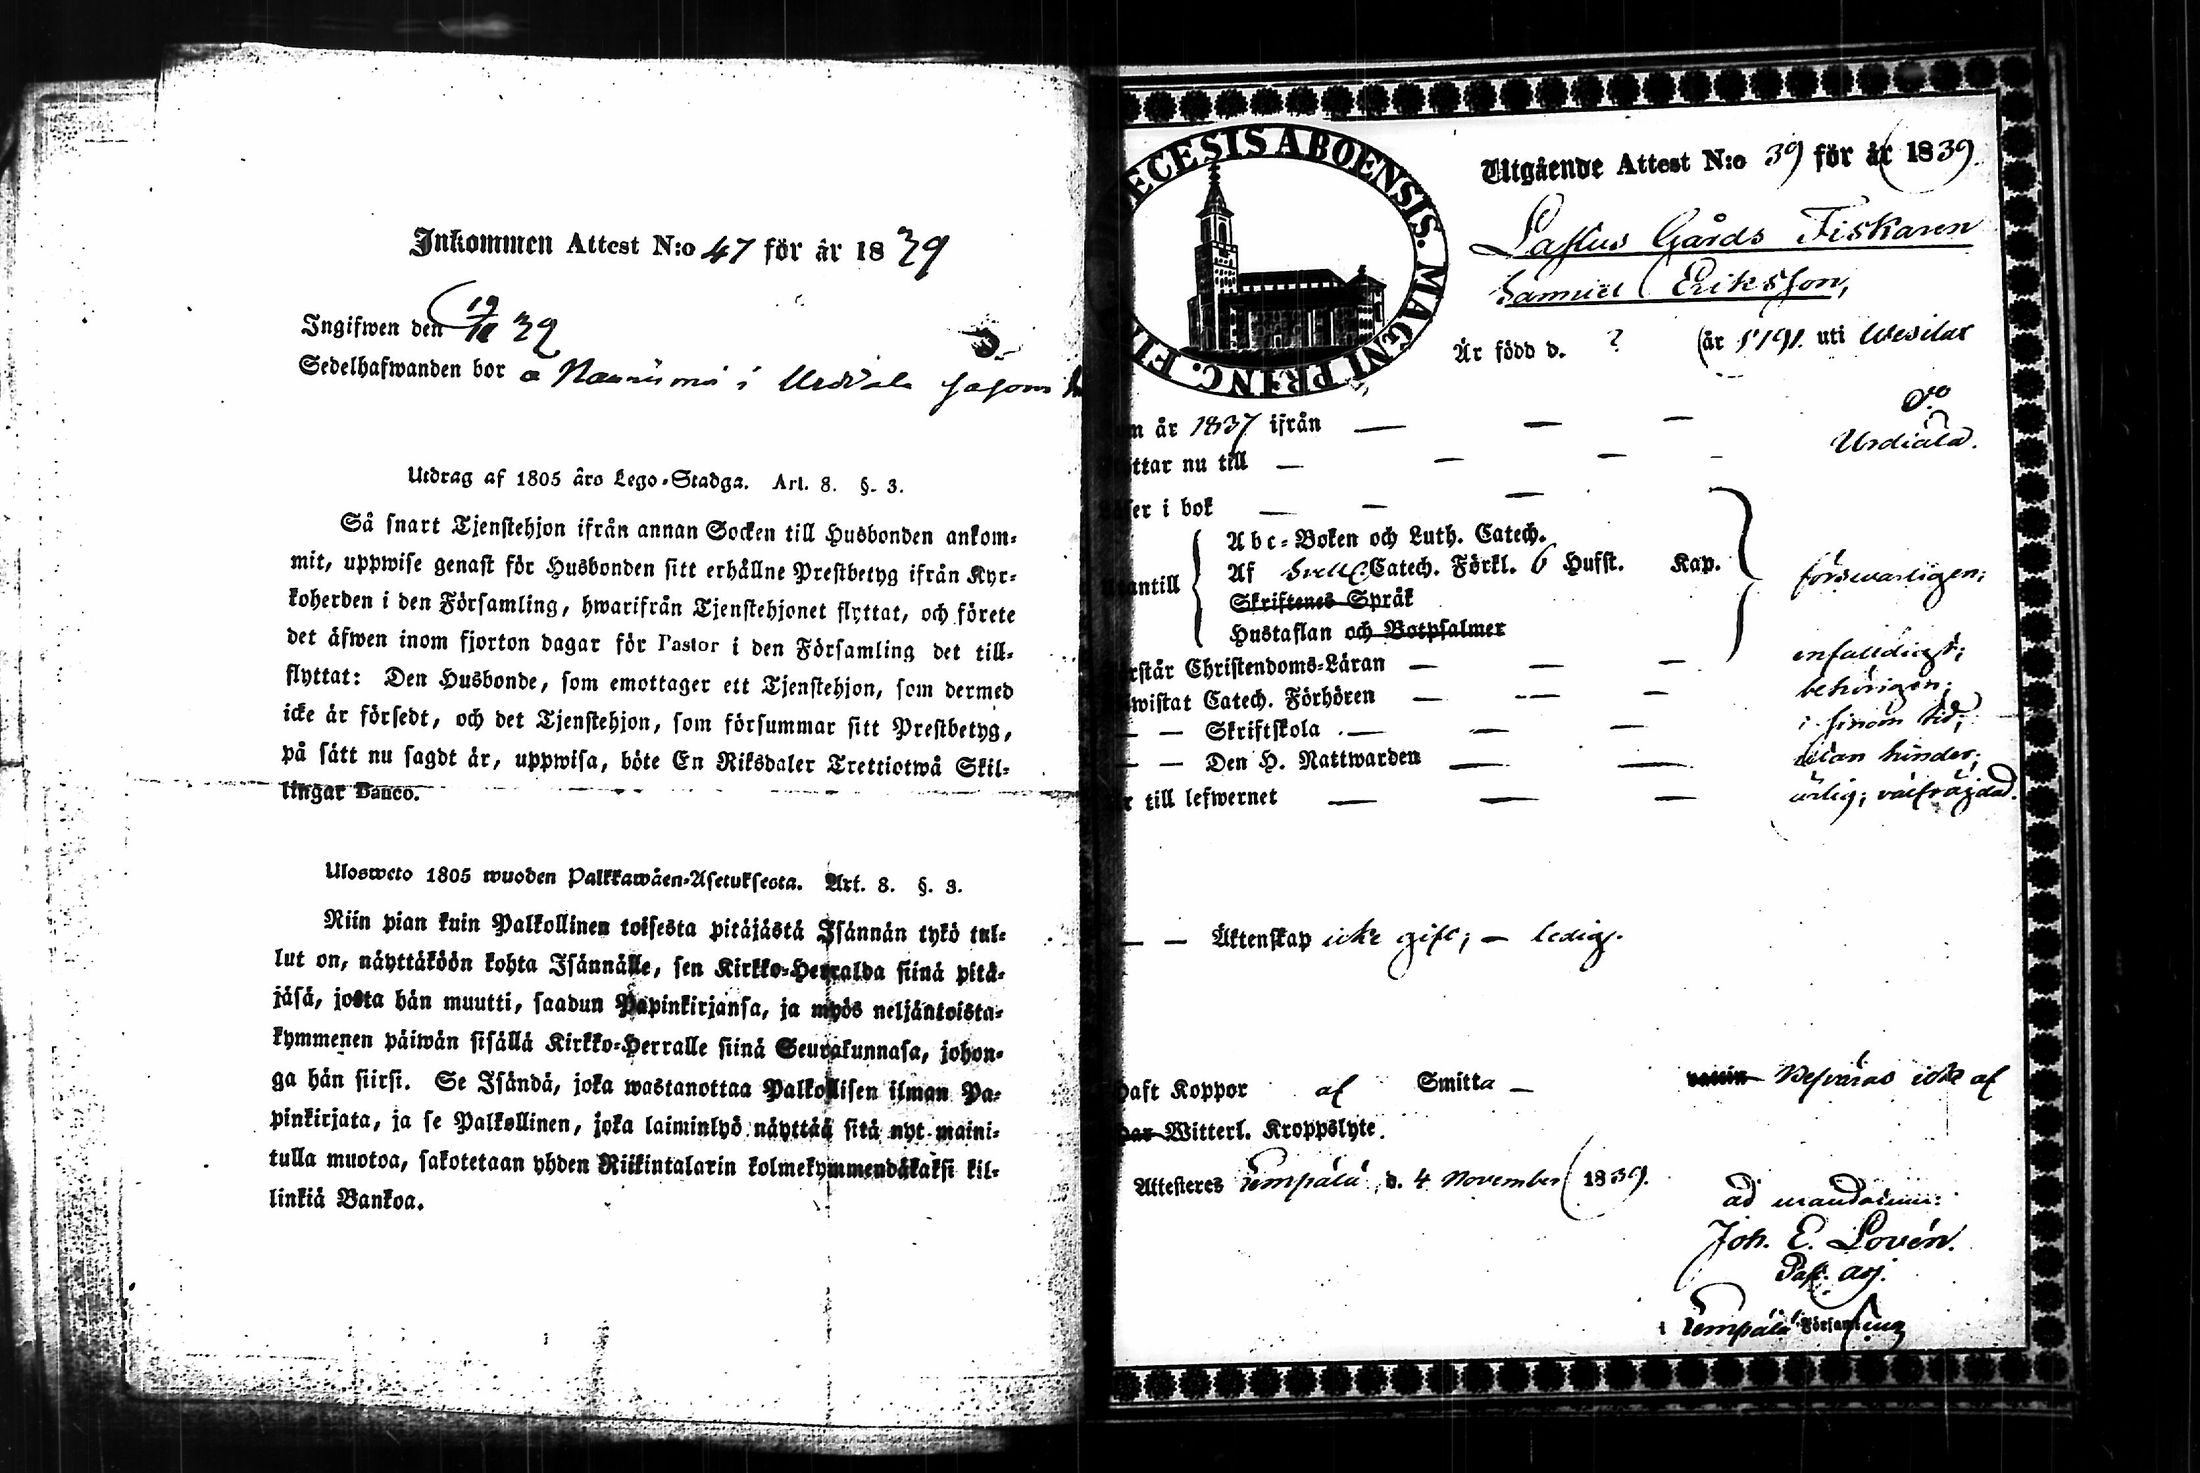 Inkommen Attest N:o 47 för år 1839
Ingifwen den 19/11 39
Sedelhafwanden bor å i Urdiala
Utdrag af 1805 års Lego-Stadga. Art. 8. §. 3.
Så snart Tjenstehjon ifrån annan Socken till Husbonden ankom-
mit, uppwise genast för Husbonden sitt erhållne Prestbetyg ifrån Kyr-
koherden i den Församling, hwarifrån Tjenstehjonet flyttat, och förete
det äfwen inom fjorton dagar för Pastor i den Församling det till-
flyttat: Den Husbonde, som emottager ett Tjenstehjon, som dermed
icke är försedt, och det Tjenstehjon, som försummar sitt Prestbetyg,
på sätt nu sagdt är, uppwisa, böte En Riksdaler Trettiotwå Skil-
lingar Banco.
Ulosweto 1805 wuoden Palkkawäen-Asetuksesta. Art. 8. §. 3.
Niin pian kuin Palkollinen toisesta pitäjästä Isännän tykö tul-
lut on, näyttäköön kohta Isännälle, sen Kirkko-Herralda siinä pitä-
jäsä, josta hän muutti, saadun Papinkirjansa, ja myös neljäntoista-
kymmenen päiwän sisällä Kirkko-Herralle siinä Seurakunnasa, johon-
ga hän siirsi. Se Isändä, joka wastanottaa Palkollisen ilman Pa-
pinkirjata, ja se Palkollinen, joka laiminlyö näyttää sitä nyt maini-
tulla muotoa, sakotetaan yhden Riikintalarin kolmekymmendäkaksi kil-
linkiä Bankoa.
ECESIS ABOENSIS. MAGNI PRINC. FI
Utgående Attest N:o 39 för år 1839.
Lastus Gårds Fiskaren
Samuel Eriksson,
Är född d. ? år 1791 uti Wesilax
m år 1837 ifrån — — — do
ttar nu till — — — - Urdiala.
ser i bok — — —
Abc-Boken och Luth. Catech.
antill Af Sveb. Catech. Förkl. 6 Hufst. Kap. försvarligen;
Skriftenes Språk
Hustaflan och Botpsalmer
rstår Christendoms-Läran — — — enfaldigt;
wistat Catech. Förhören — — — behörigen;
— — Skriftskola — — — i sinom tid;
— — Den H. Nattwarden — — utan hinder;
r till lefwernet — — — ärlig; välfräjdad.
— — Äktenskap icke gift; — ledig.
haft Koppor af Smitta — vaccin Besväras icke af
har Witterl. Kroppslyte.
Attesteres Lempälä, d. 4 November 1839.
ad mandatum:
Joh. E. Lovén.
Past. adj.
i Lempälä Församling